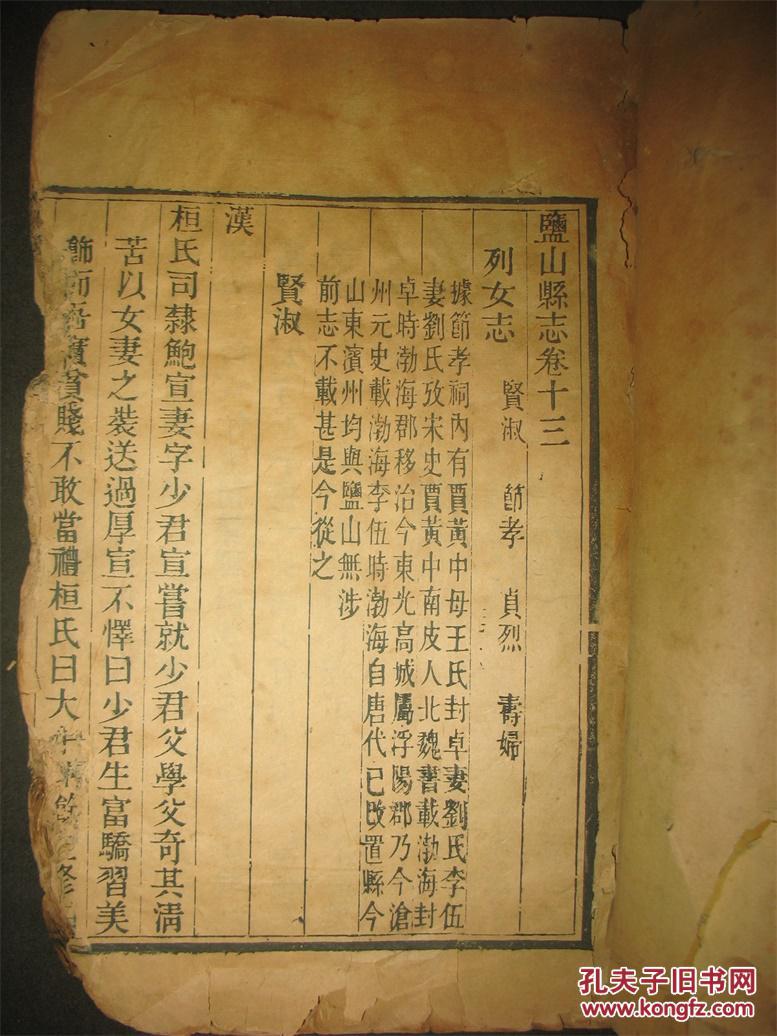 鹽山縣志卷十三
列女志 賢淑 節孝 貞烈 壽婦
據節孝祠內有賈黃中母王氏封卓妻劉氏李伍
妻劉氏攷宋史賈黃中南皮人北魏書載渤海封
卓時渤海郡移治今東光高城屬浮陽郡乃今滄
州元史載渤海李伍時渤海自唐代已改置縣今
山東濱州均與鹽山無涉
前志不載甚是今從之
賢淑
漢
桓氏司隸鮑宣妻字少君宣嘗就少君父學父奇其清
苦以女妻之裝送過厚宣不懌曰少君生富驕習美
飾而貧賤不敢當禮桓氏曰大修
孔夫子旧书网
www.kongfz.com